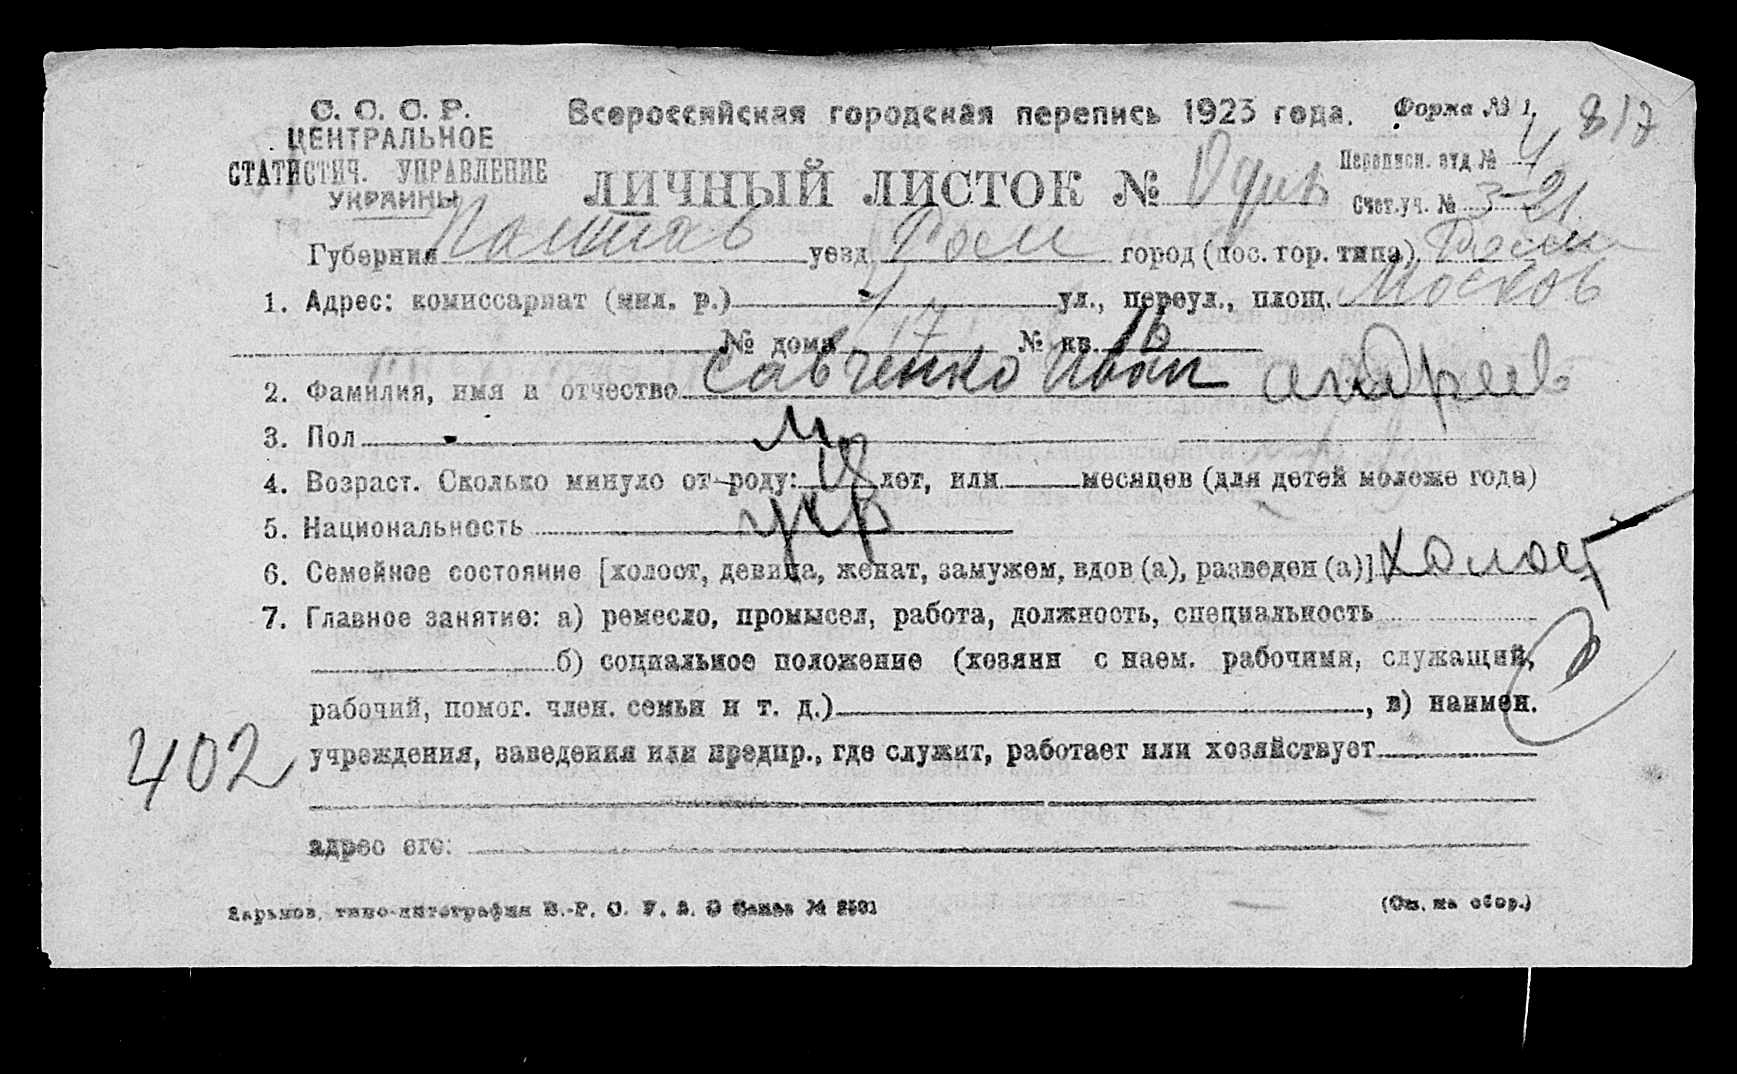 С. С. С. Р.
ЦЕНТРАЛЬНОЕ
СТАТИСТИЧ. УПРАВЛЕНИЕ
УКРАИНЫ
Всероссийская городская перепись 1923 года.
Форма № 1.
817
Переписн. отд № 4
ЛИЧНЫЙ ЛИСТОК № Один
Счет. уч. № 3-21
Губерния Полтав уезд Ром город (пос. гор. типа). Ромн
1. Адрес: комиссариат (мил. р.) 4 ул., переул., площ. Москов
№ дома 17 № кв. 1б
2. Фамилия, имя и отчество Савченко Иван Андреев
3. Пол м
4. Возраст. Сколько минуло от роду: 18 лет, или месяцев (для детей моложе года)
5. Национальность укр
6. Семейное состояние [холост, девица, женат, замужем, вдов (а), разведен (а)] холост
7. Главное занятие: а) ремесло, промысел, работа, должность, специальность
б) социальное положение (хозяин с наем. рабочими, служащий,
рабочий, помог. член. семьи и т. д.) , в) наимен.
402
учреждения, заведения или предпр., где служит, работает или хозяйствует
адрес его:
Харьков, типо-литография В.-Р. О. У. З. О Заказ № 2531
(См. на обор.)